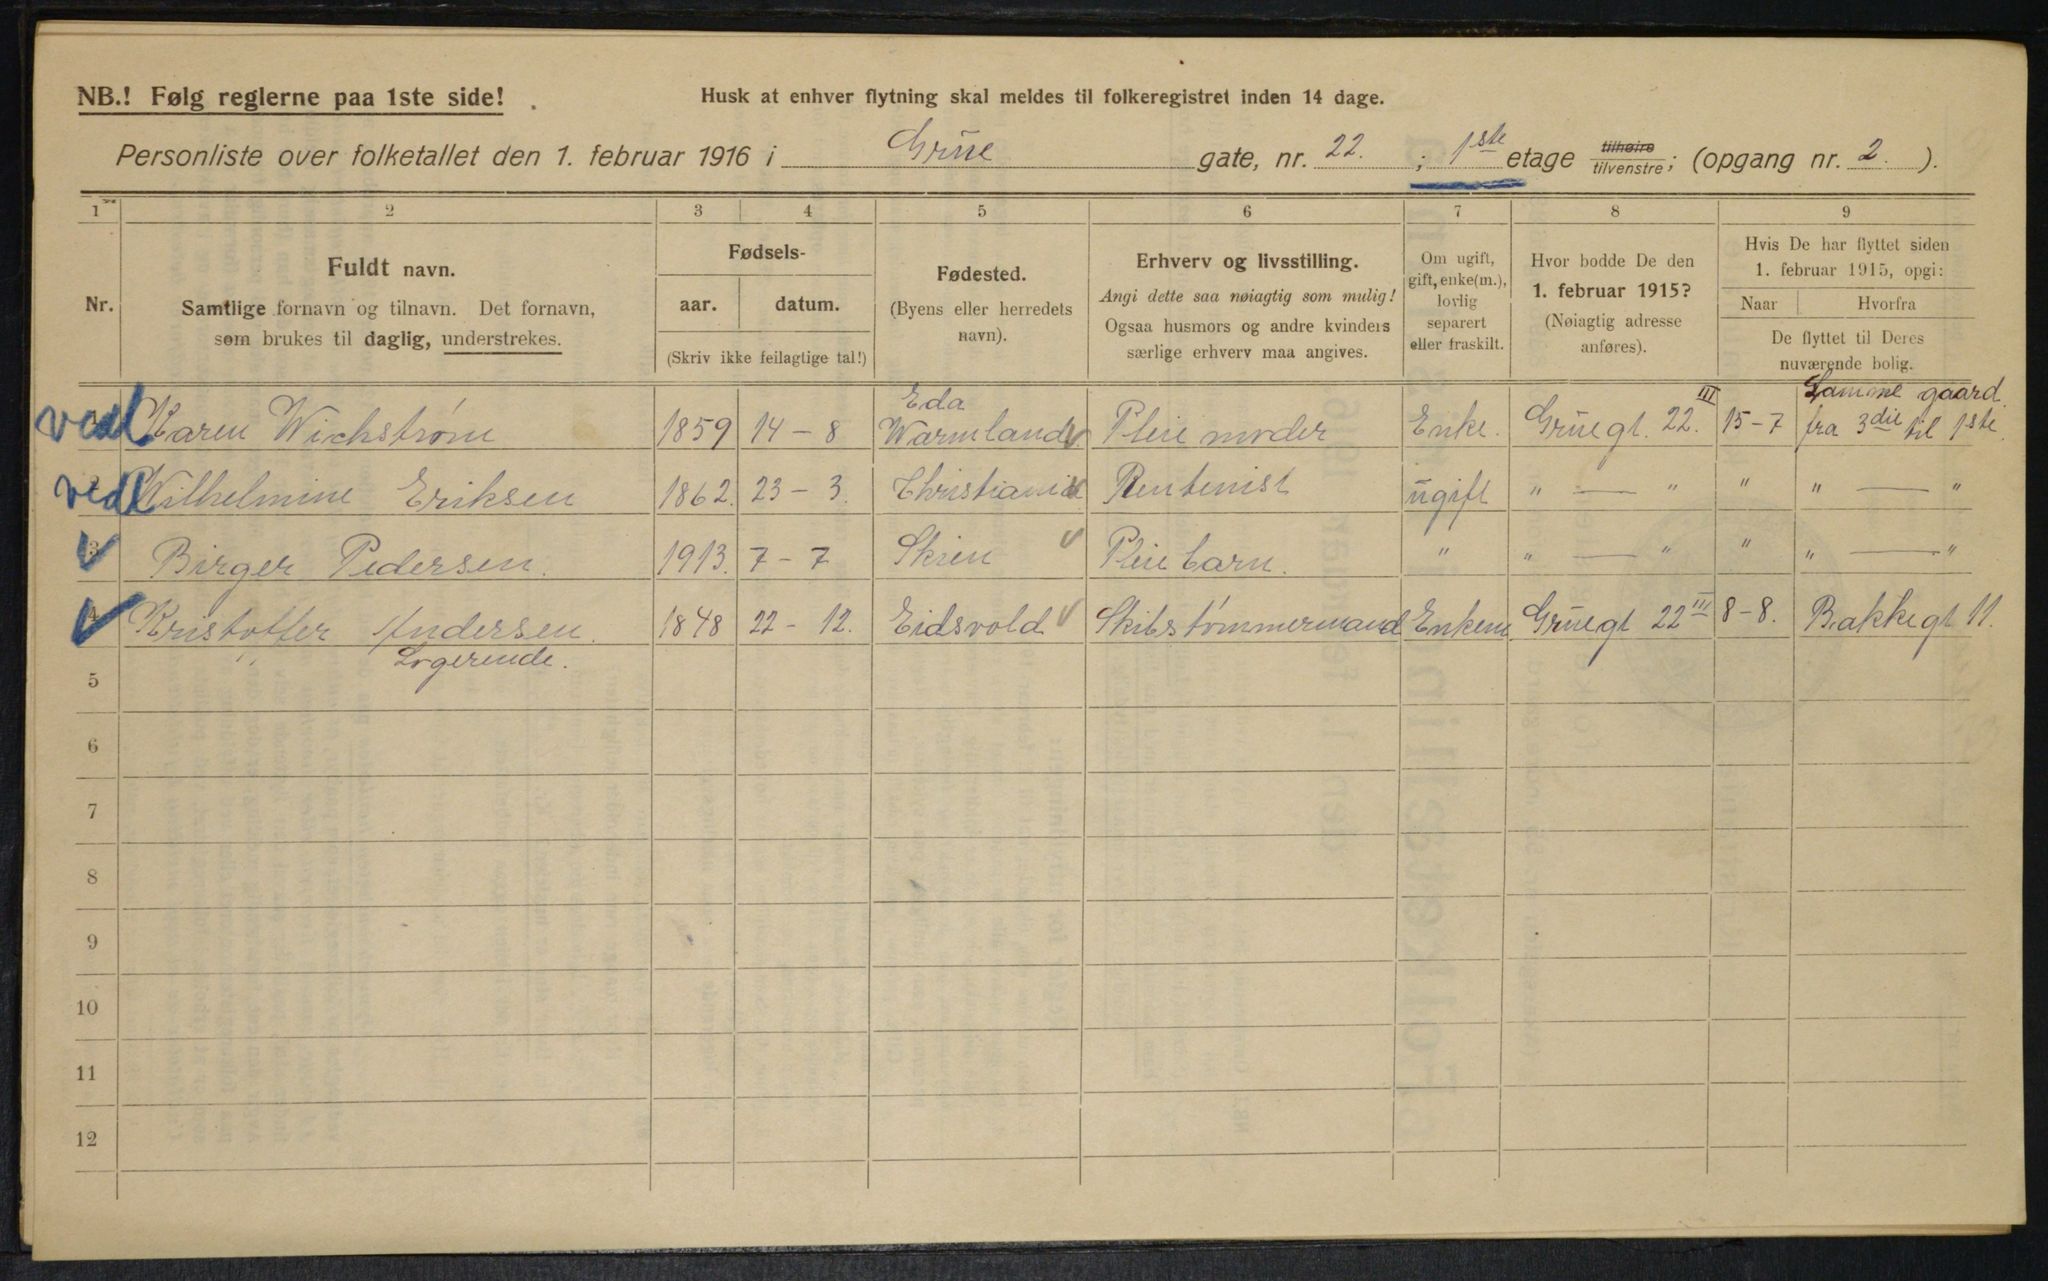 NB.! Følg reglerne paa 1ste side!
Husk at enhver flytning skal meldes til folkeregistret inden 14 dage.
Personliste over folketallet den 1. februar 1916 i Grüe gate, nr. 22. ; 1ste etage tilhøire tilvenstre; (opgang nr. 2. ).
1 2 3 4 5 6 7 8 9
Nr.
Fuldt navn.
Samtlige fornavn og tilnavn. Det fornavn,
som brukes til daglig, understrekes.
Fødsels-
aar. datum.
(Skriv ikke feilagtige tal!)
Fødested.
(Byens eller herredets
navn).
Erhverv og livsstilling.
Angi dette saa nøiagtig som mulig!
Ogsaa husmors og andre kvinders
særlige erhverv maa angives.
Om ugift,
gift, enke(m.),
lovlig
separert
eller fraskilt.
Hvor bodde De den
1. februar 1915?
(Nøiagtig adresse
anføres).
Hvis De har flyttet siden
1. februar 1915, opgi:
Naar Hvorfra
De flyttet til Deres
nuværende bolig.
Eda Samme gaard.
ved Karen Wichstrøm 1859 14 - 8 Warmland Pleie moder Enke. Grüegt. 22. III 15-7 fra 3die til 1ste.
ved Wilhelmine Eriksen 1862. 23 - 3. Christiania Rentenist ügift " — " " " — "
3 Birger Pedersen. 1913. 7 - 7 Skien Pleie barn. " " — " " " — "
4 Kristoffer Andersen. 1848 22 - 12. Eidsvold Skibstømmermand Enkem. Grüegt 22 III 8-8. Bakkegt 11.
Logerende.
5
6
7
8
9
10
11
12